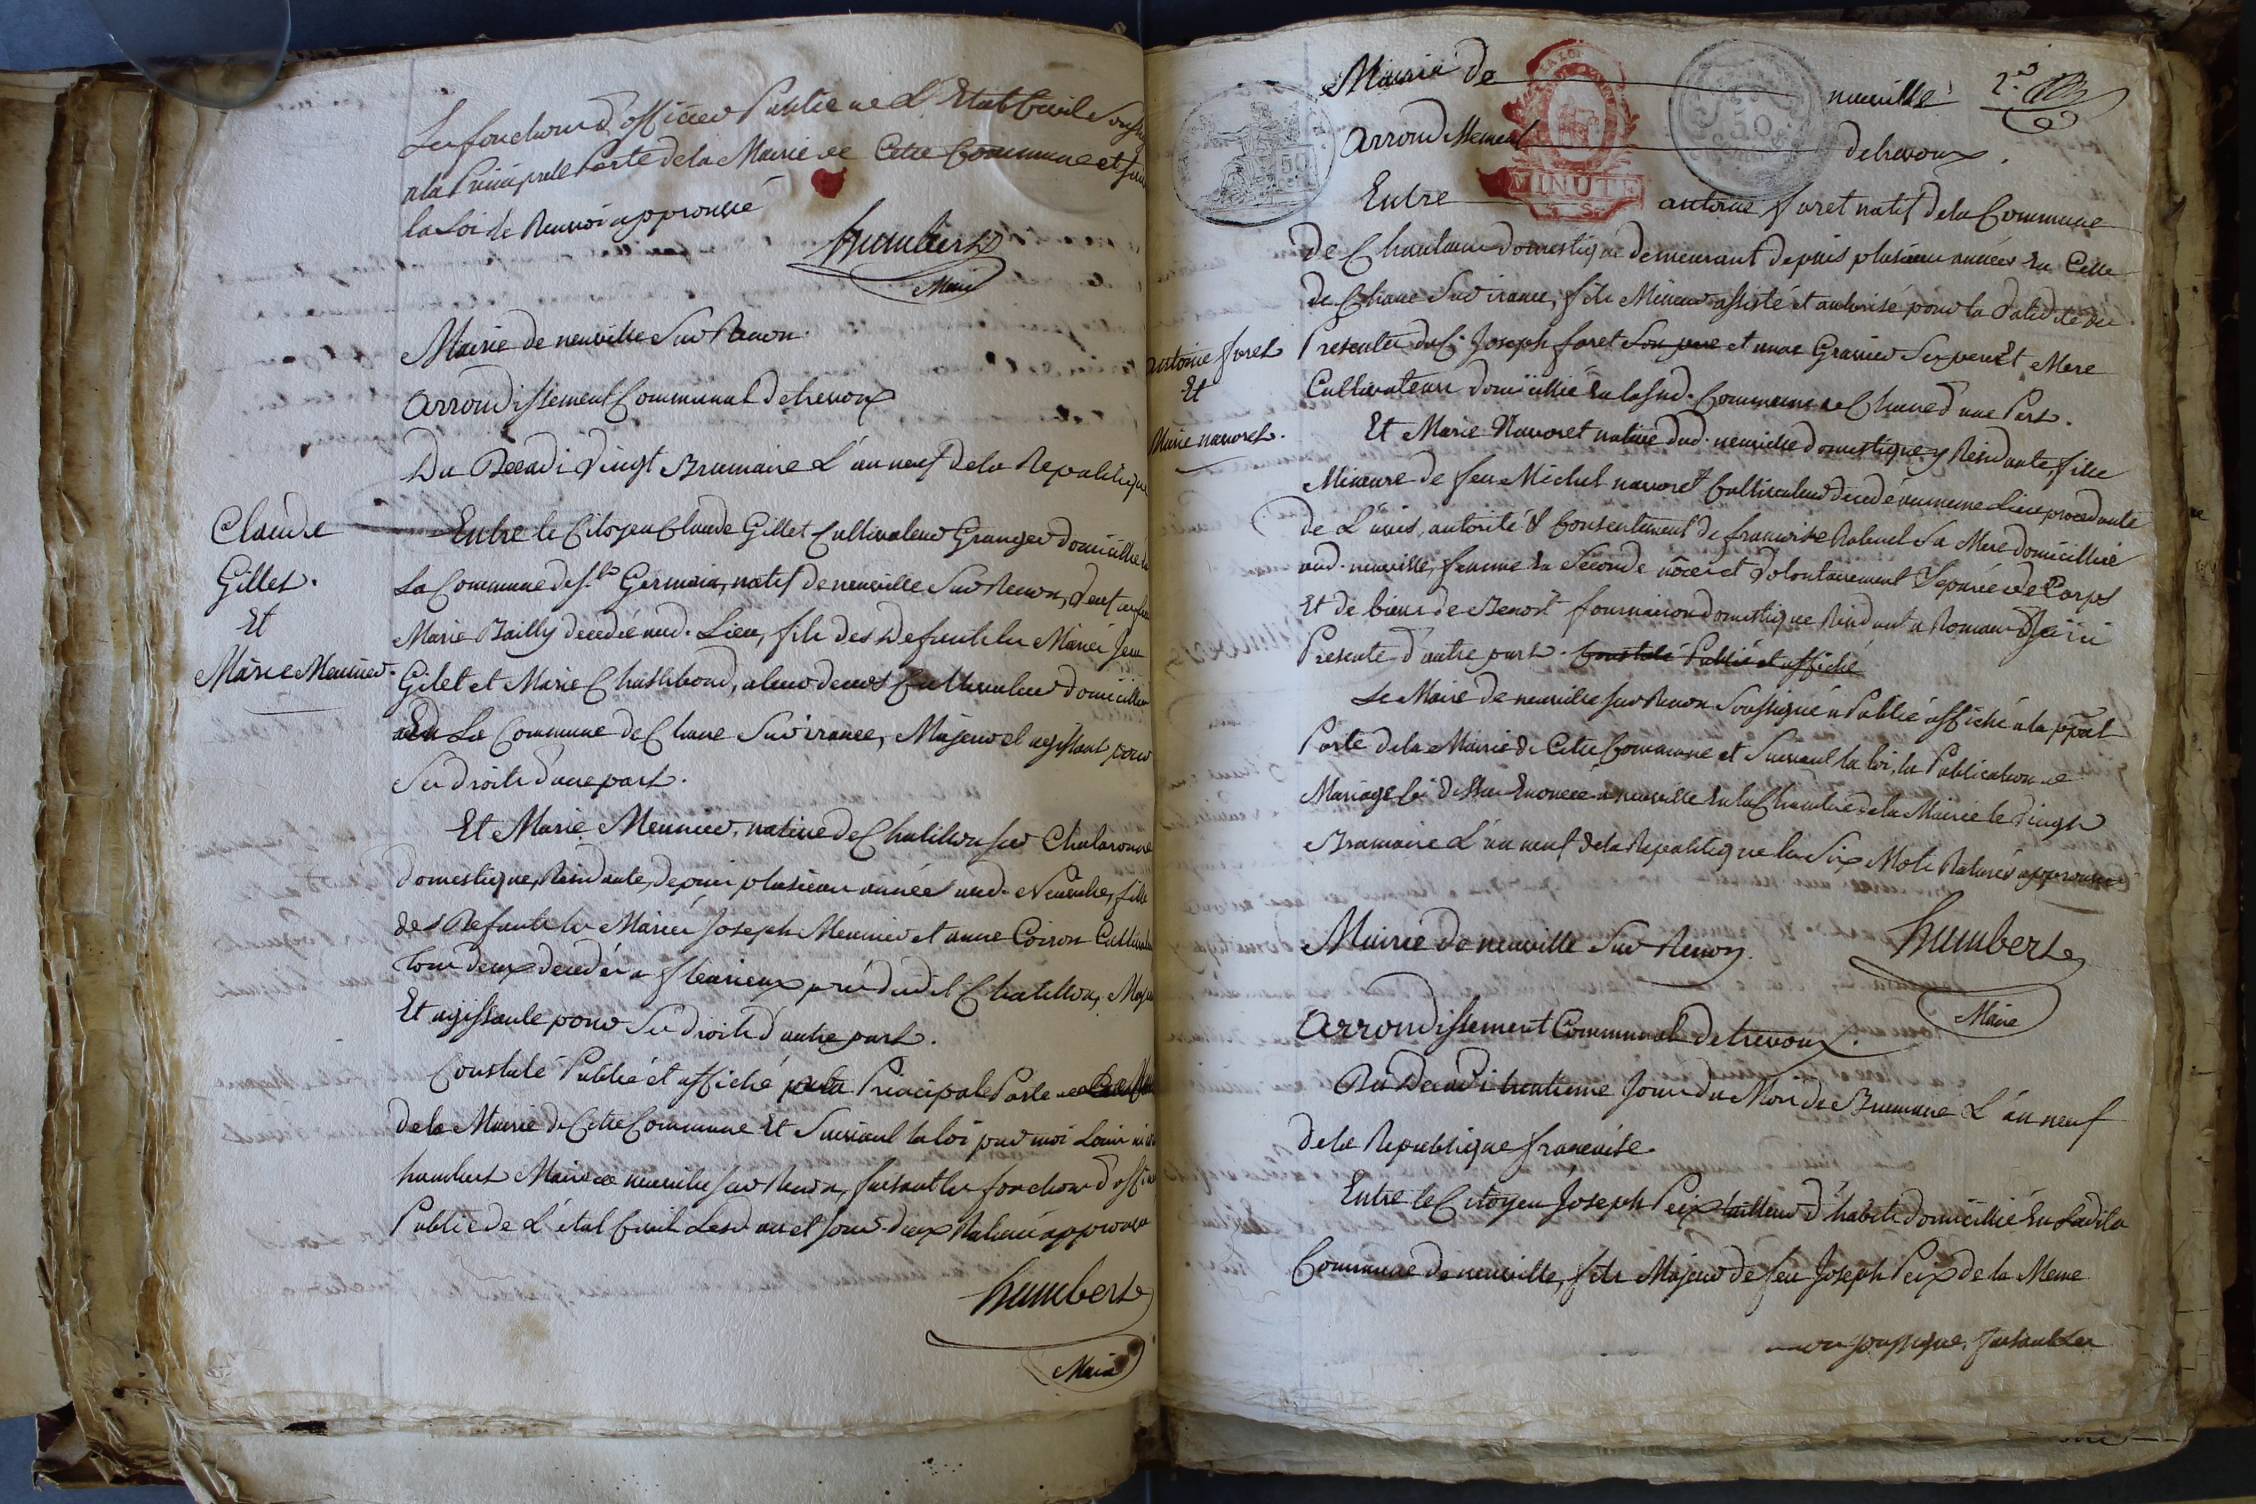 Les fonctions d'officier Public de L'Etat Civil
a la Principale Porte de la Mairie de Cette Commune et
la Loi le Renvoi approuvé
humbert
Maire
Mairie de neuville Sur Renon.
Arrondissement Communal de trevoux
Du Decadi Vingt Brumaire L'an neuf de la Republique
Claude
Gillet.
Et
Marie Meunier.
Entre le Citoyen Claude Gillet Cultivateur Granger domicillié
La Commune de St Germain, natif de neuville Sur Renon, Veuf
Marie Bailly decedée aud. Lieu, fils des Defunts les Mariés
Gilet et Marie, aleur deces Cultivateurs domicilliés
La Commune de Chane Sur irance, Majeur et agissant pour
Ses droits d'une part.
Et Marie Meunier, native de Chatillon sur Chalaronne
domestique, Residante depuis plusieurs année aud. Neuville, fille
des Defunts les Mariés Joseph Meunier et anne Coiron
tous deux decedés a fleurieux prés dudit Chatillon,
Et agissante pour Ses droits d'autre part.
Constaté Publié et affiché Principale Porte
de la Mairie de Cette Commune Et Suivant la loi par moi Louis
humbert Maire de neuville sur Renon, faisant les fonctions
Public de L'état Civil Lesd. an et Jour deux Raturés approuvé
humbert
Maire
Mairie de neuville 2.e
Arrondissement de trevoux.
Entre antoine furet natif de la Commune
de domestique demeurant depuis plusieurs années En Celle
de Chane Sur irance, fils Mineur assisté et autorisé pour la Validité des
Presentes du C. Joseph furet Son pere et anne Granier Ses pere Et Mere
Cultivateurs domicilliés En lasusd. Commune de Chane d'une Part.
antoine furet
Et
Marie navoret.
Et Marie Navoret native dud. neuville domestique y Residante, fille
Mineure de feu Michel navoret Cultivateur decedé au meme Lieu procedante
de L'avis, autorité & Consentement de francoise Sa Mere domicilliée
aud. neuville, femme En Seconde noces et Volontairement Separée de Corps
Et de biens de Benoit domestique Residant a Romans
Presente d'autre part. Constaté Publié et affiché
Le Maire de neuville sur Renon Soussigné a Publié affiché a la ppale
Porte de la Mairie de Cette Commune et Suivant la loi, la Publication de
Mariage Ci dessus Enoncée a neuville En la Chambre de la Mairie le Vingt
Brumaire L'an neuf de la Republique les Six Mots Raturés approuvés
humbert
Maire
MINUTE
Mairie de neuville Sur Renon.
Arrondissement Communal de trevoux.
Du Decadi trentieme Jour du Mois de Brumaire L'an neuf
de la Republique francaise.
Entre le Citoyen Joseph Peix tailleur d'habits domicillié En Ladite
Commune de neuville, fils Majeur de feu Joseph Peix de la Meme
soussigné, faisant Les